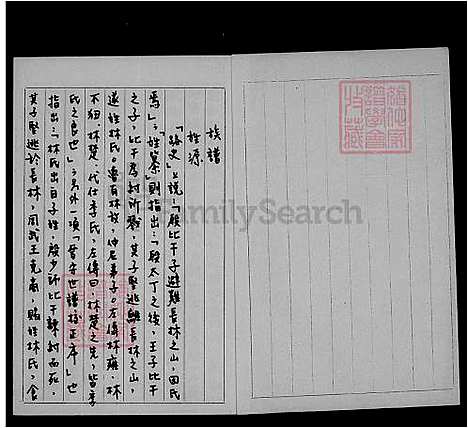 族譜
姓源
「路史」上說：「殷比干子避難長林之山，因氏
焉」，「姓纂」則指出：「殷太丁之後，王子比干
之子，比干為紂所戮，其子堅逃難長林之山，
遂姓林氏。魯有林放，仲尼弟子。左傳林雍．林
不狃．林楚．代仕季氏，左傳曰．林楚之先，皆季
氏之良也」。另外一項「晉安世譜校正序」也
指出：「林氏出自子姓，殷少師比干諫紂而死，
其子堅逃於長林，周武王克商，賜姓林氏，食
FamilySearch